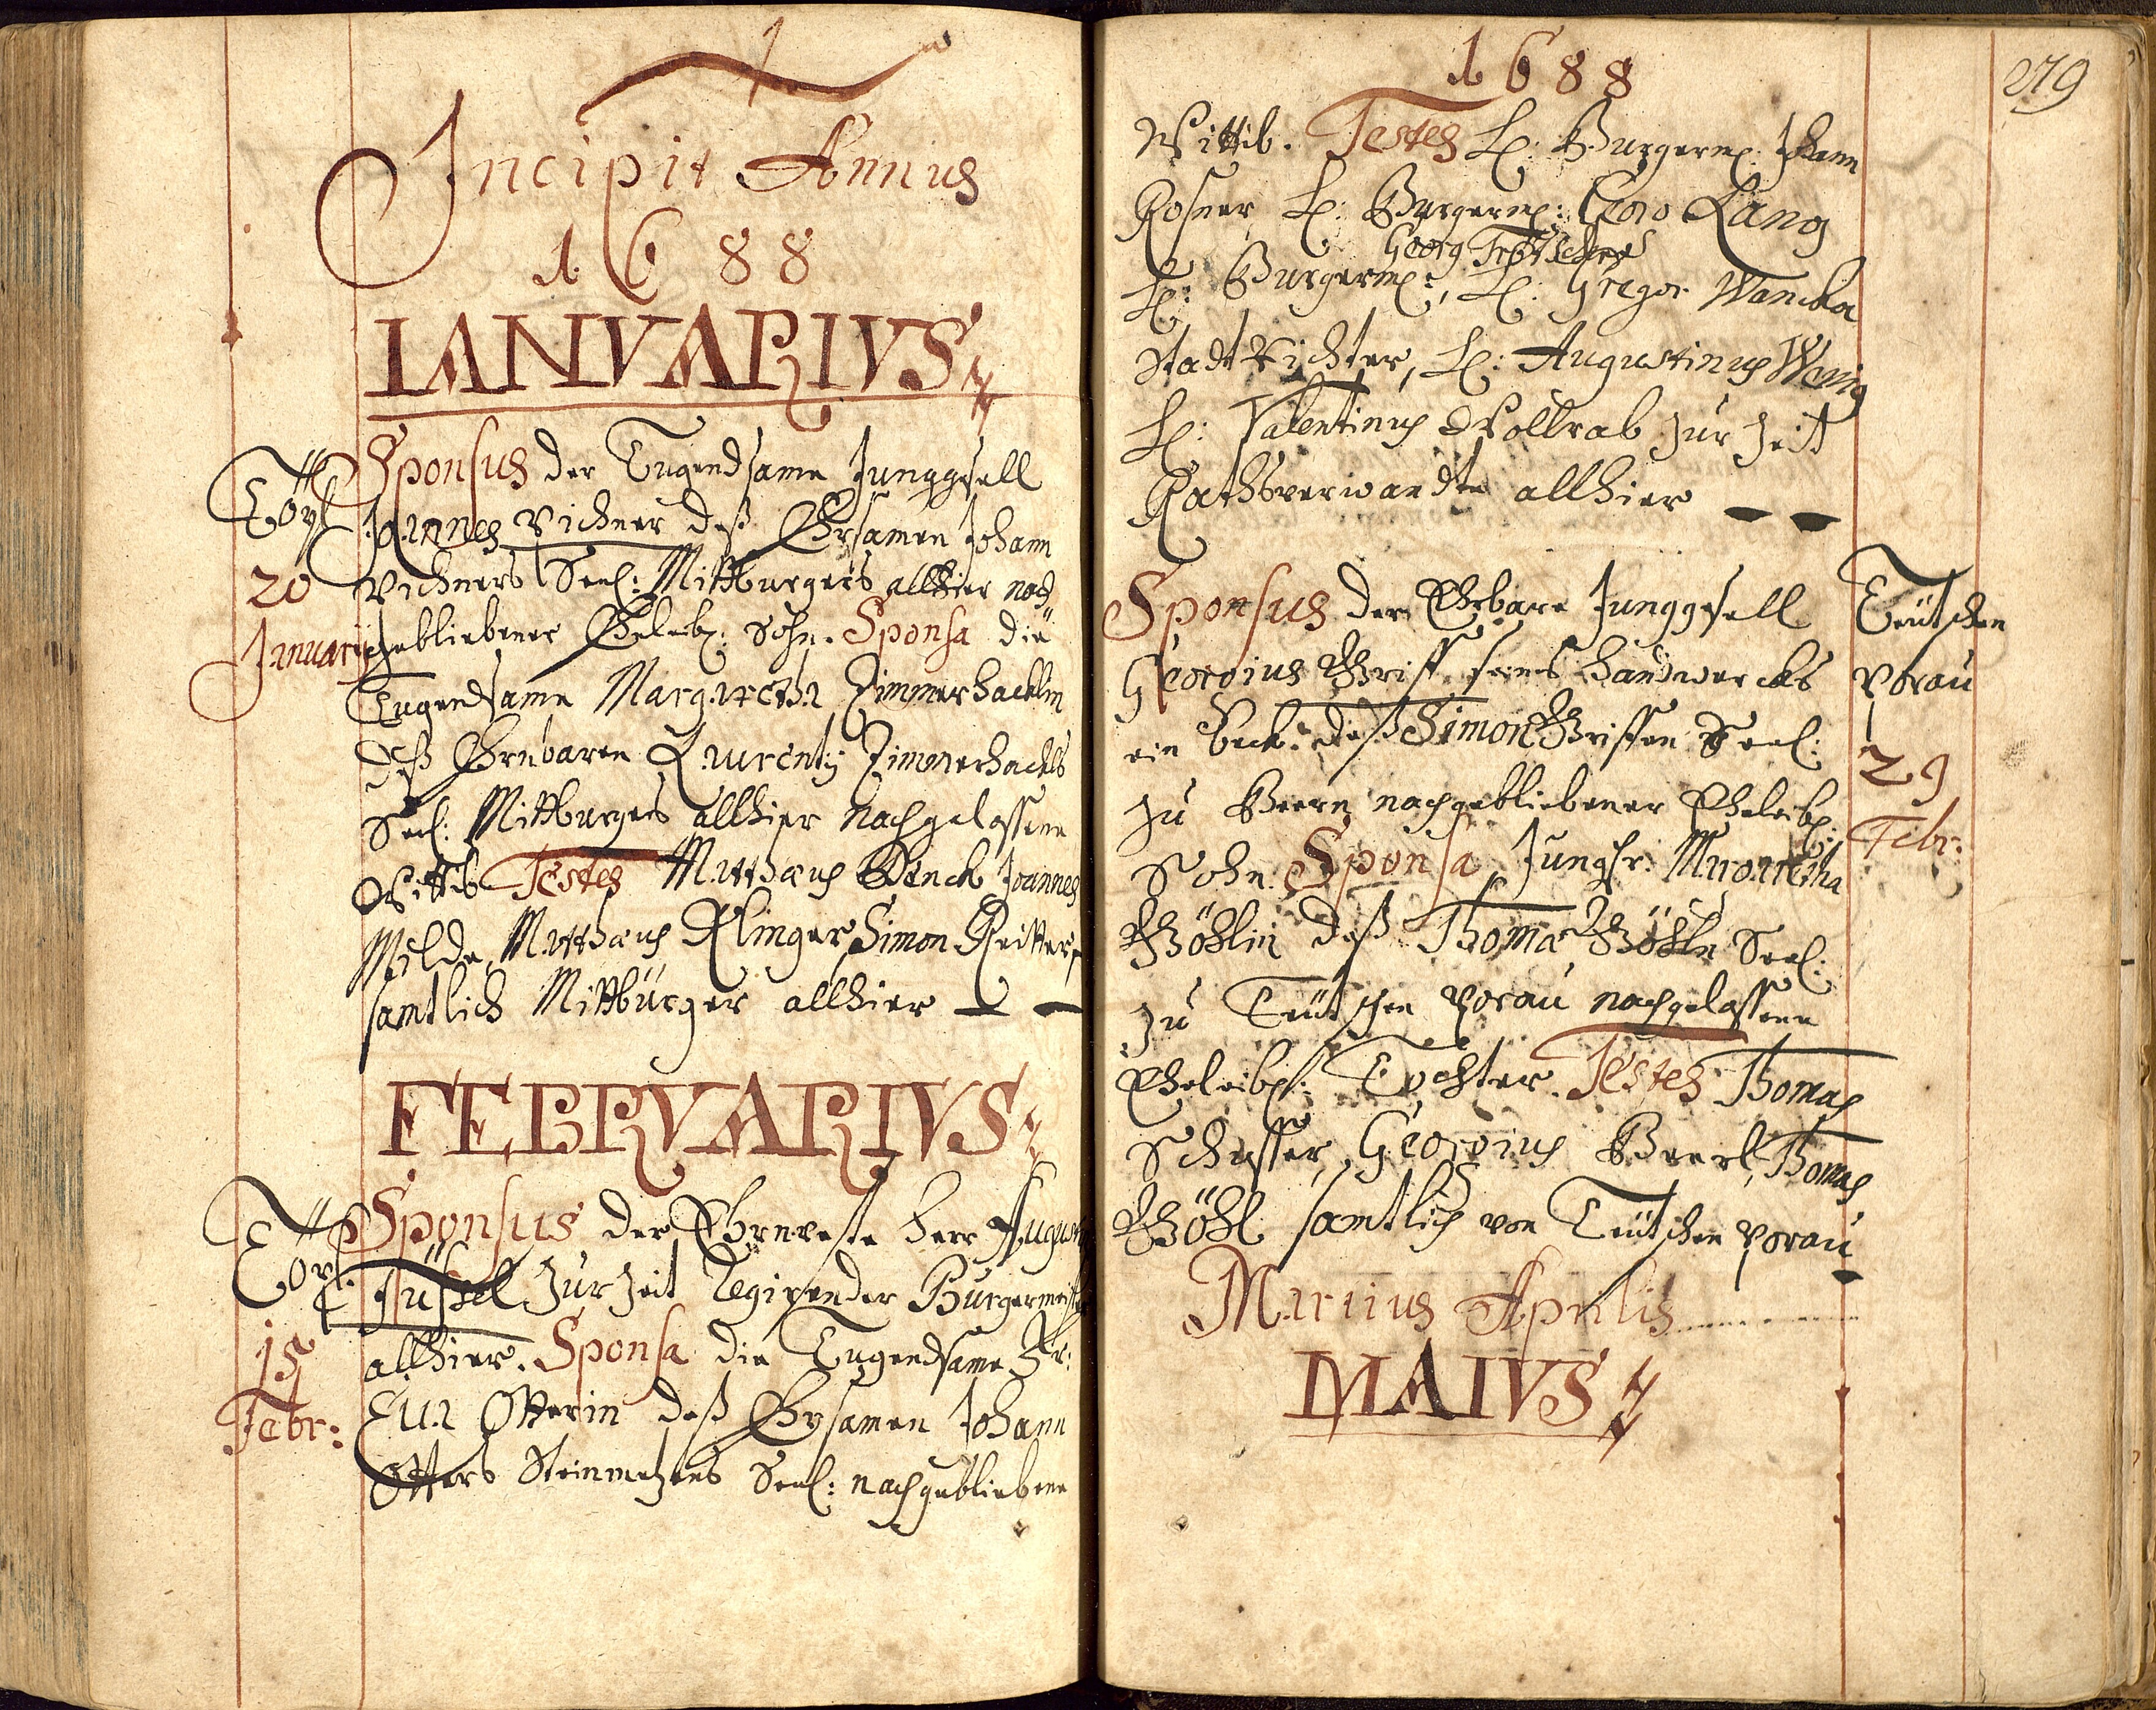 Incipit Annus
1688
IANVARIVS
Töpl
20
Januarij
Sponsus der Tugendsame Junggesell
Joannes Vichner deß Ehrsamen Johann
Vichners Seel: Mittburgers allhier nach
gebliebener Eheleibl: Sohn. Sponsa die
Tugendsame Margaretha Zimmerhacklin
deß Ehrnbaren Laurentij Zimmerhackls
Seel: Mittburgers allhier nachgelassene
Wittib Testes Matthæus Denck Joannes
Milde, Matthæus Klinger Simon Reitter
samtlich Mittbürger allhier
FEBRVARIVS
Töpl
15
Febr:
Sponsus der Ehrnveste Herr August
Füssel zur Zeit Regirender Burgermeister
allhier. Sponsa die Tugendsame Fr:
Eva Otterin deß Ehrsamen Johann
Otters Steinmetzens Seel: nachgebliebene
1688
279
Wittib. Testes H: Burgerm: Johann
Rosner, H: Burgerm: Georg Lang
Georg
H: Burgerm:, H: Gregor Wancka
Stadt Richter, H: Augustinus Wenig
H: Valentinus Vollrab zur Zeit
Rathsverwandte allhier
Teütschen
Vorau
29
Febr:
Sponsus der Ehrbare Junggesell
Georgius seines Handwercks
ein Beck. deß Simon Seel:
zu nachgebliebener Eheleibl:
Sohn. Sponsa Jungfr: Margaretha
deß Thomæ Seel:
zu Teütschen Vorau nachgelassene
Eheleibl: Tochter. Testes Thomas
Schusser, Georgius Beerl, Thomas
samtlich von Teütschen Vorau
Martius Aprilis
MAIVS